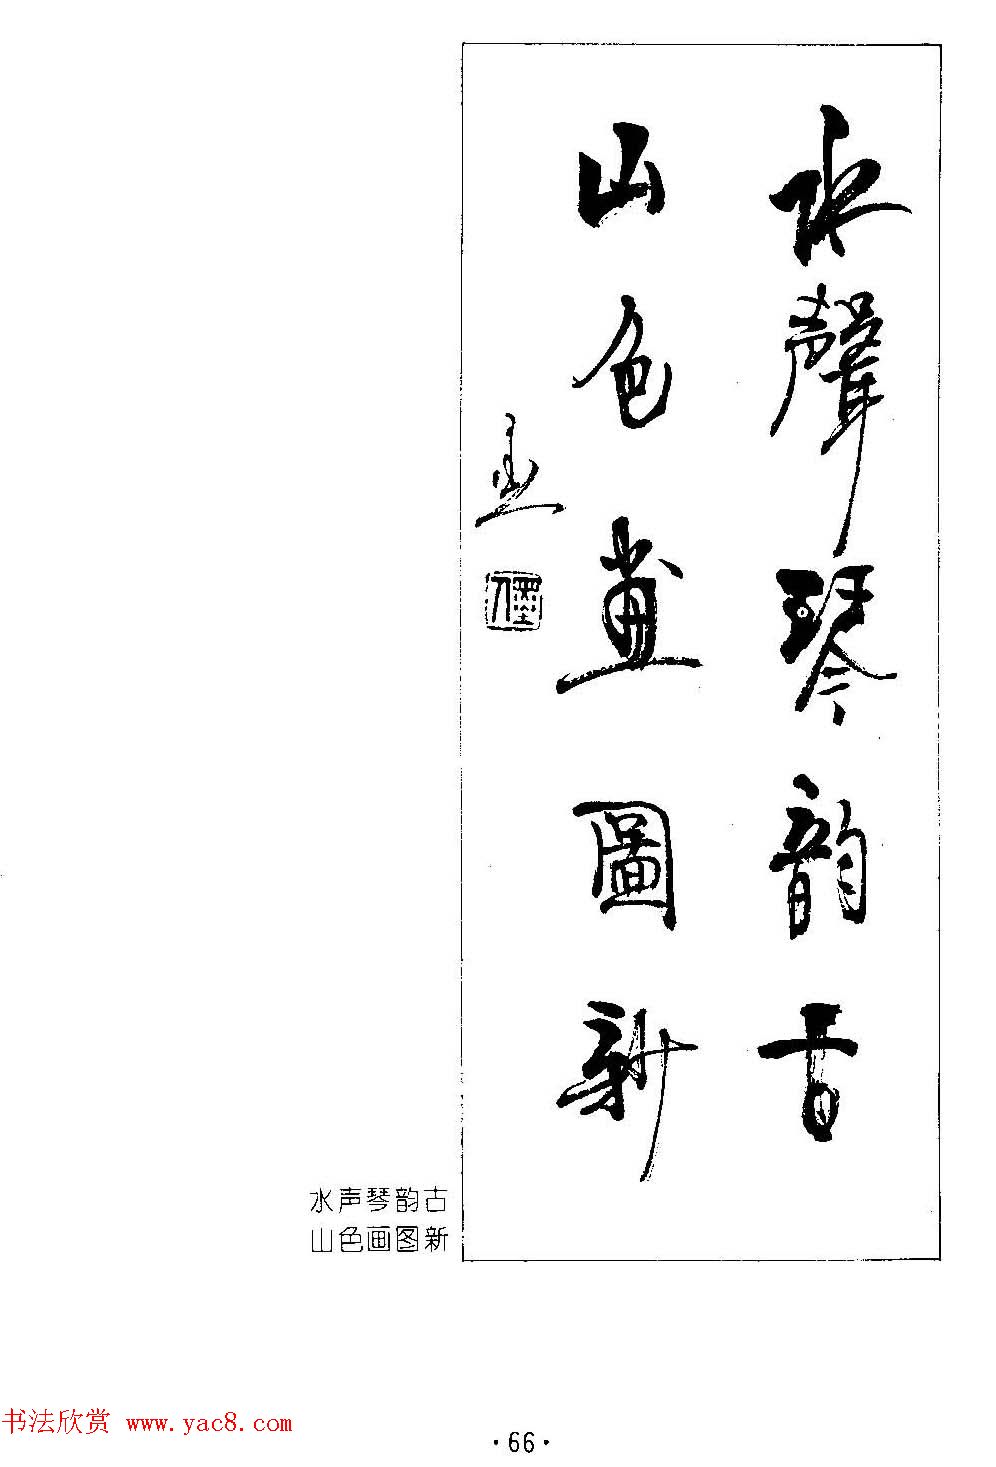 水聲琴韵古
山色畫圖新
水声琴韵古
山色画图新
书法欣赏 www.yac8.com
·66·